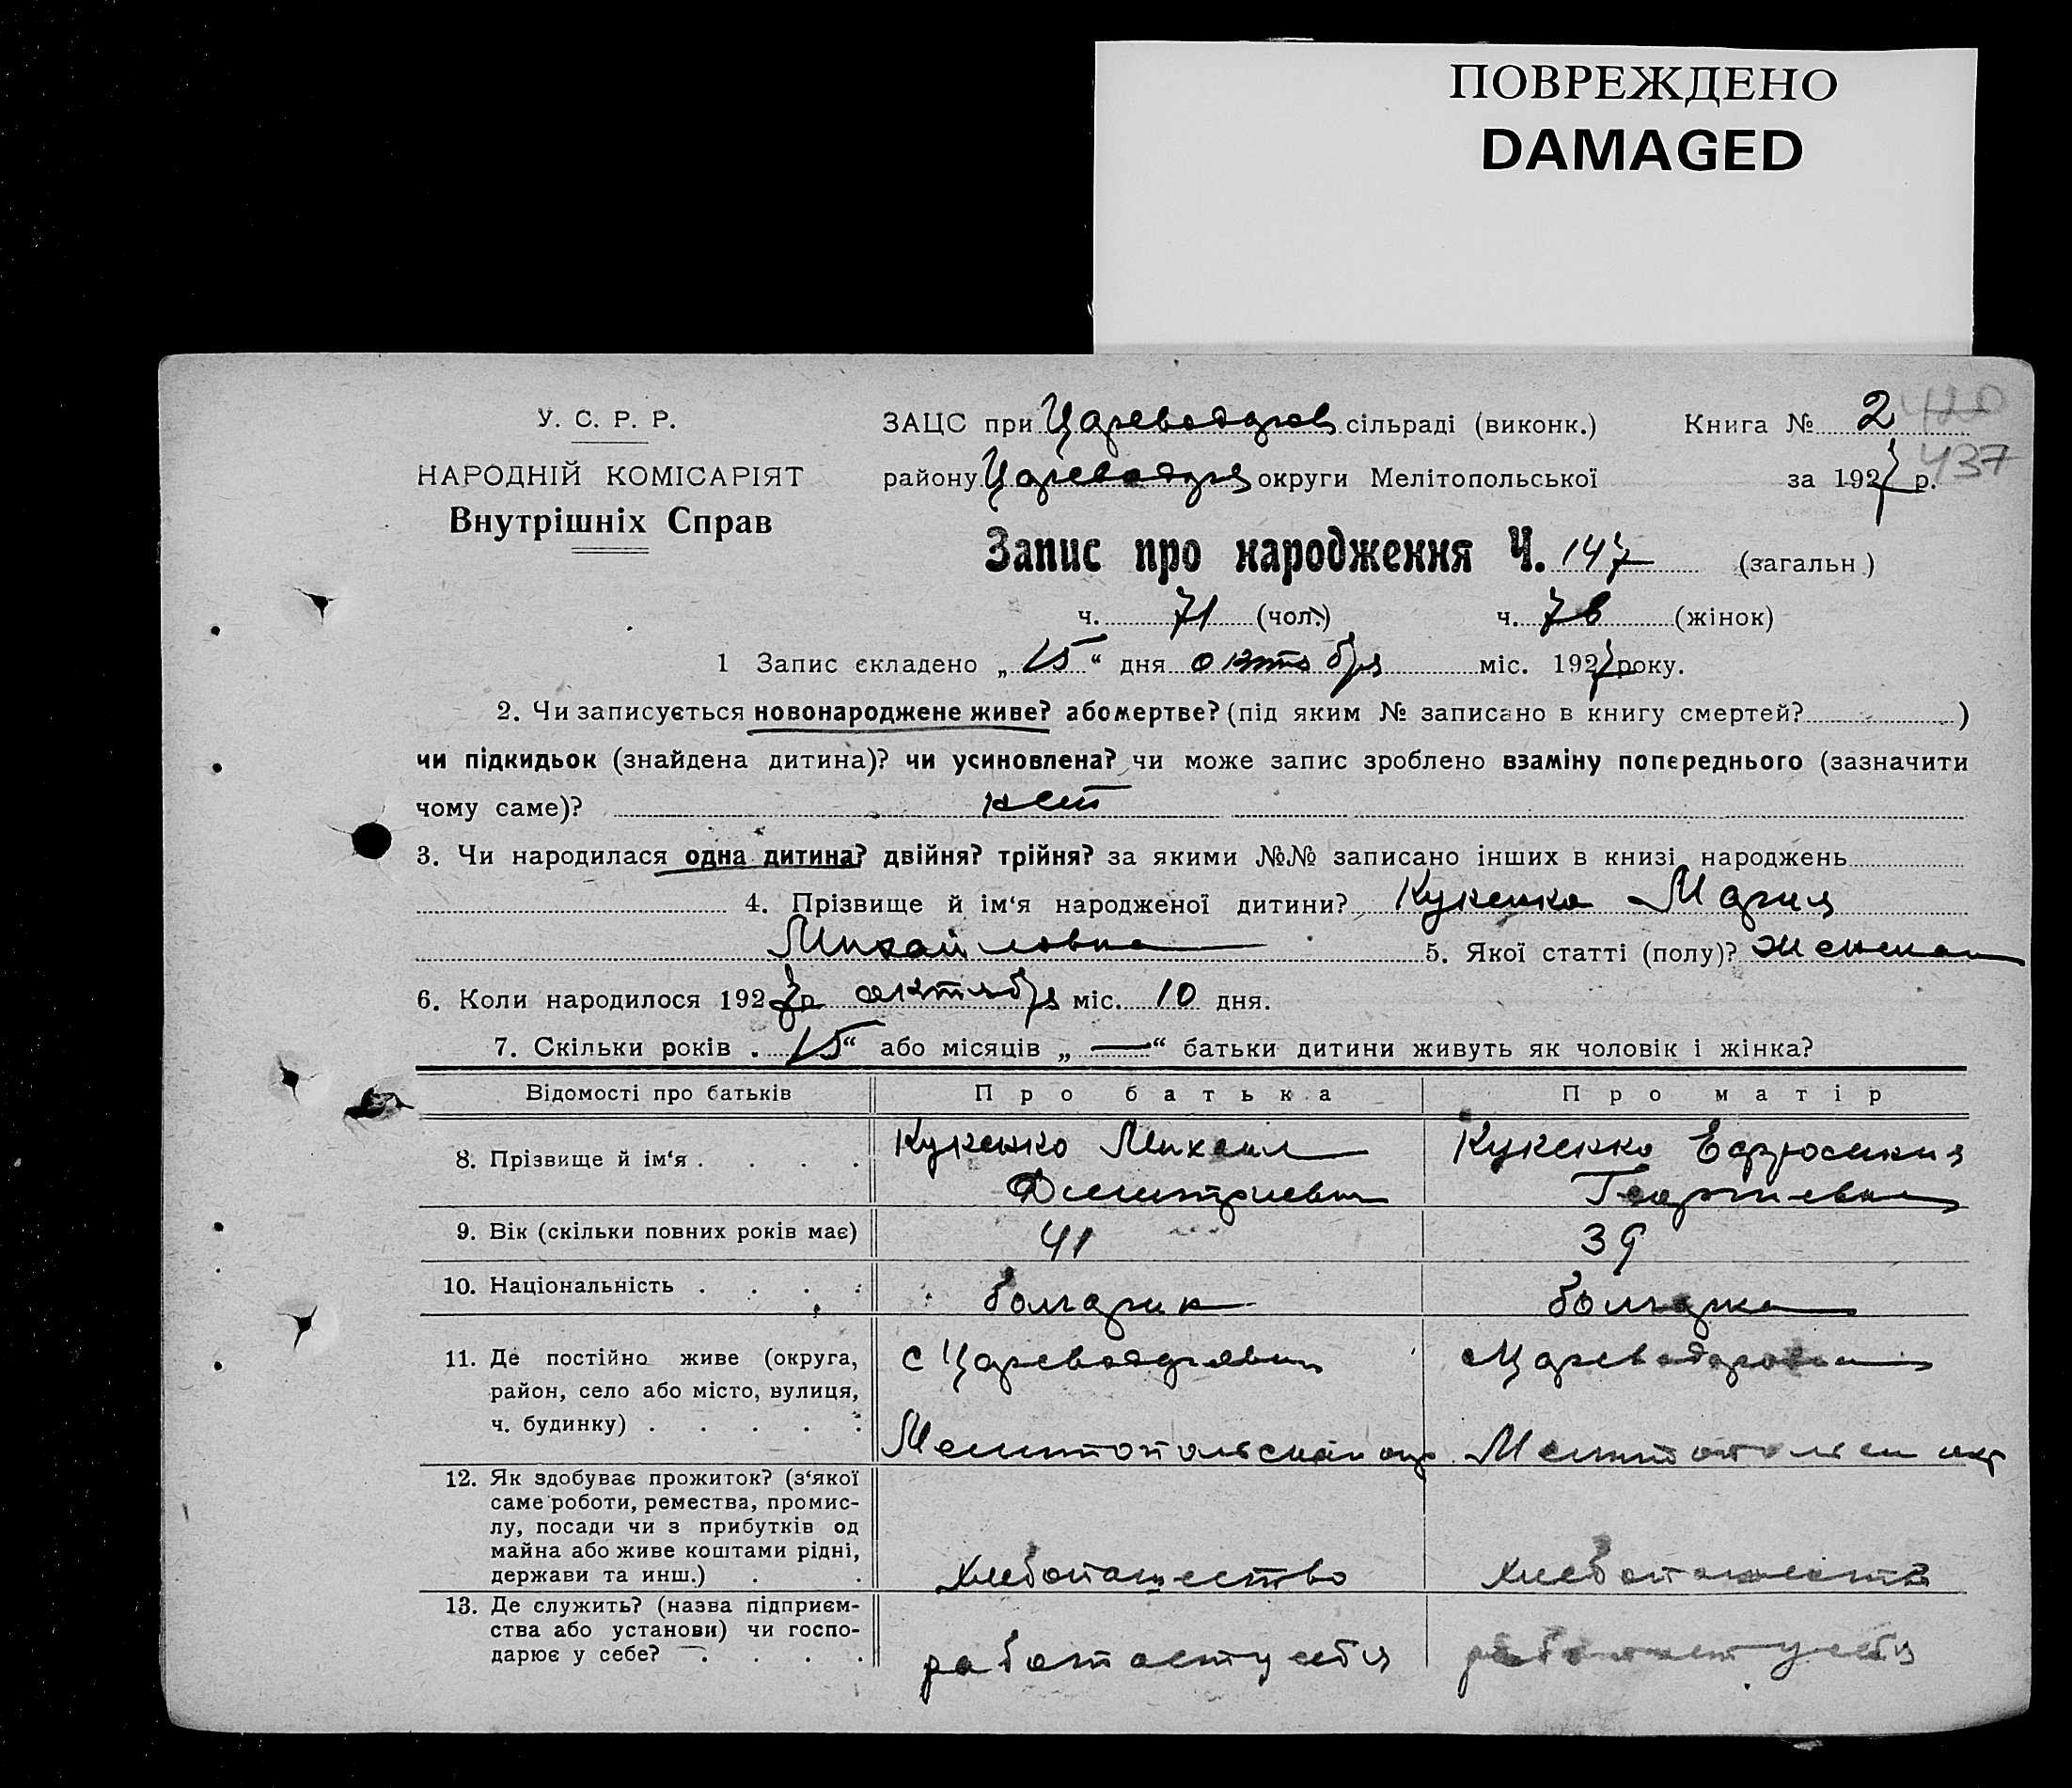 ПОВРЕЖДЕНО
DAMAGED
У. С. Р. Р.
НАРОДНІЙ КОМІСАРІЯТ
Внутрішніх Справ
ЗАЦС при Цареводаров сільраді (виконк.) Книга № 2 420
району Цареводар округи Мелітопольської за 1927 р. 437
Запис про народження Ч. 147 (загальн)
ч. 71 (чол.) ч. 76 (жінок)
1 Запис складено „15“ дня октобря міс. 1927 року.
2. Чи записується новонароджене живе? або мертве? (під яким № записано в книгу смертей? )
чи підкидьок (знайдена дитина)? чи усиновлена? чи може запис зроблено взаміну попереднього (зазначити
чому саме)? нет
3. Чи народилася одна дитина? двійня? трійня? за якими №№ записано інших в книзі народжень
4. Прізвище й ім‘я народженої дитини? Кукенко Мария
Михайловна 5. Якої статті (полу)? женская
6. Коли народилося 1927 р октября міс. 10 дня.
7. Скільки років „15“ або місяців „—“ батьки дитини живуть як чоловік і жінка?
Відомості про батьків Про батька Про матір
8. Прізвище й ім‘я . . . . Кукенко Михаил Кукенко Ефросиния
Дмитриевич Георгиевна
9. Вік (скільки повних років має) 41 39
10. Національність . . . . болгарин болгарка
11. Де постійно живе (округа,
район, село або місто, вулиця,
ч. будинку) . . . . .
с Цареводаровка с Цареводаровка
Мелитопольской окр Мелитопольск окр
12. Як здобуває прожиток? (з‘якої
саме роботи, ремества, промис-
лу, посади чи з прибутків од
майна або живе коштами рідні,
держави та инш.) . .
хлебопашество хлебопашество
13. Де служить? (назва підприєм-
ства або установи) чи госпо-
дарює у себе? . . . .
работает у себя работает у себя